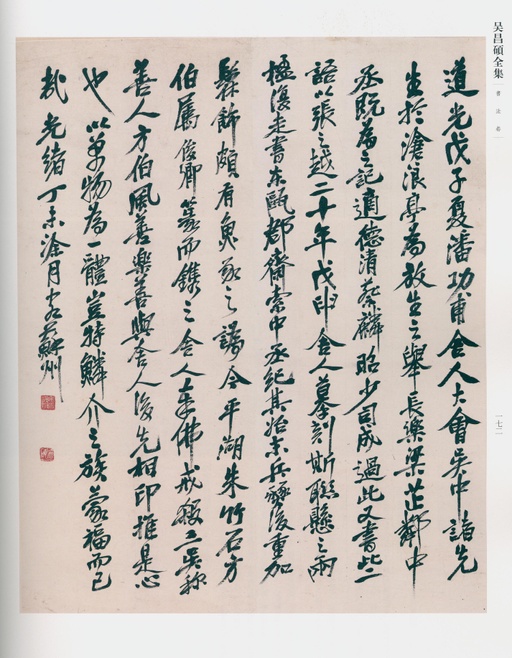 吴昌硕全集
書法卷
一七二
道光戊子夏潘功甫舍人大會吳中諸先
生於滄浪亭為放生之舉長樂梁茝鄰中
丞既為之記適德清蔡麟昭少司成過此又書此二
語以張之越二十年戊申舍人摹刻斯聯懸之兩
楹復走書東甌郡齋索中丞紀其始末兵燹後重加
髹飾頗有魚豕之譌今平湖朱竹石方
伯屬俊卿篆而鐫之舍人奉佛戒殺三吳稱
善人方伯風善樂善與舍人後先相印推是心
也以萬物為一體豈特鱗介之族蒙福而已
哉光緒丁未涂月客蘇州